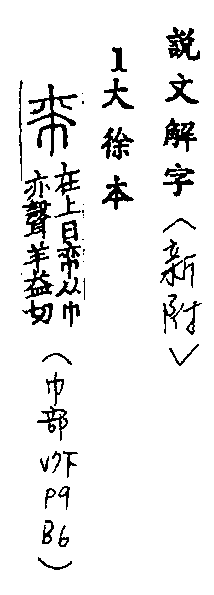 説文解字〈新附〉
1大徐本
帟
在上曰帟从巾
亦聲羊益切
(巾部V7下P9B6)